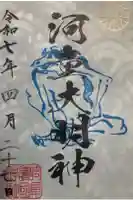 河童大明神
令和七年四月二十七日